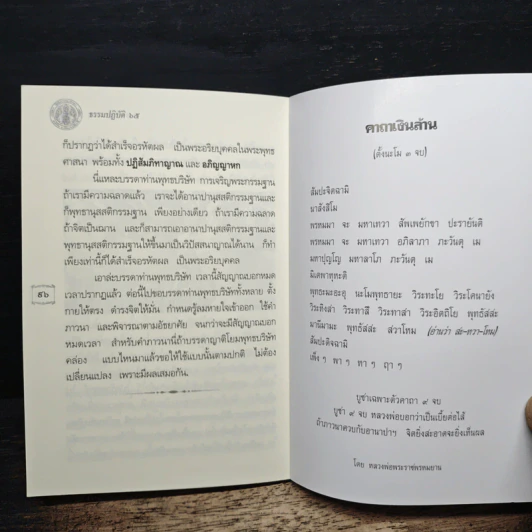 ธรรมปฏิบัติ ๖๕
ก็ปรากฏว่าได้สำเร็จอรหัตผล เป็นพระอริยบุคคลในพระพุทธ
ศาสนา พร้อมทั้ง ปฏิสัมภิทาญาณ และ อภิญญาหก
นี่แหละบรรดาท่านพุทธบริษัท การเจริญพระกรรมฐาน
ถ้าเรามีความฉลาดแล้ว เราจะได้อานาปานุสสติกรรมฐานและ
ก็พุทธานุสสติกรรมฐาน เพียงอย่างเดียว ถ้าเรามีความฉลาด
ถ้าจิตเป็นฌาน และก็สามารถเอาอานาปานุสสติกรรมฐานและ
พุทธานุสสติกรรมฐานให้ขึ้นมาเป็นวิปัสสนาญาณได้นาน ก็ทำ
เพียงเท่านี้ก็ได้สำเร็จอรหัตผล เป็นพระอริยบุคคล
เอาล่ะบรรดาท่านพุทธบริษัท เวลานี้สัญญาณบอกหมด
เวลาปรากฏแล้ว ต่อนี้ไปขอบรรดาท่านพุทธบริษัททั้งหลาย ตั้ง
กายให้ตรง ดำรงจิตให้มั่น กำหนดรู้ลมหายใจเข้าออก ใช้คำ
ภาวนา และพิจารณาตามอัธยาศัย จนกว่าจะมีสัญญาณบอก
หมดเวลา สำหรับคำภาวนานี่ถ้าบรรดาญาติโยมพุทธบริษัท
คล่อง แบบไหนมาแล้วขอให้ใช้แบบนั้นตามปกติ ไม่ต้อง
เปลี่ยนแปลง เพราะมีผลเสมอกัน.
๕๖
คาถาเงินล้าน
(ตั้งนะโม ๓ จบ)
สัมปะจิตฉามิ
นาสังสิโม
พรหมมา จะ มหาเทวา สัพเพยักขา ปะรายันติ
พรหมมา จะ มหาเทวา อภิลาภา ภะวันตุ เม
มหาปุญโญ มหาลาโภ ภะวันตุ เม
มิเตพาหุหะติ
พุทธะมะอะอุ นะโมพุทธายะ วิระทะโย วิระโคนายัง
วิระหิงสา วิระทาสี วิระทาสา วิระอิตถิโย พุทธัสสะ
มานีมามะ พุทธัสสะ สวาโหม (อ่านว่า สะ-หวา-โหม)
สัมปะติจฉามิ
เพ็ง ๆ พา ๆ หา ๆ ฤา ๆ
บูชาเฉพาะตัวคาถา ๙ จบ
บูชา ๙ จบ หลวงพ่อบอกว่าเป็นเบี้ยต่อไส้
ถ้าภาวนาควบกับอานาปาฯ จิตยิ่งสะอาดจะยิ่งเห็นผล
โดย หลวงพ่อพระราชพรหมยาน